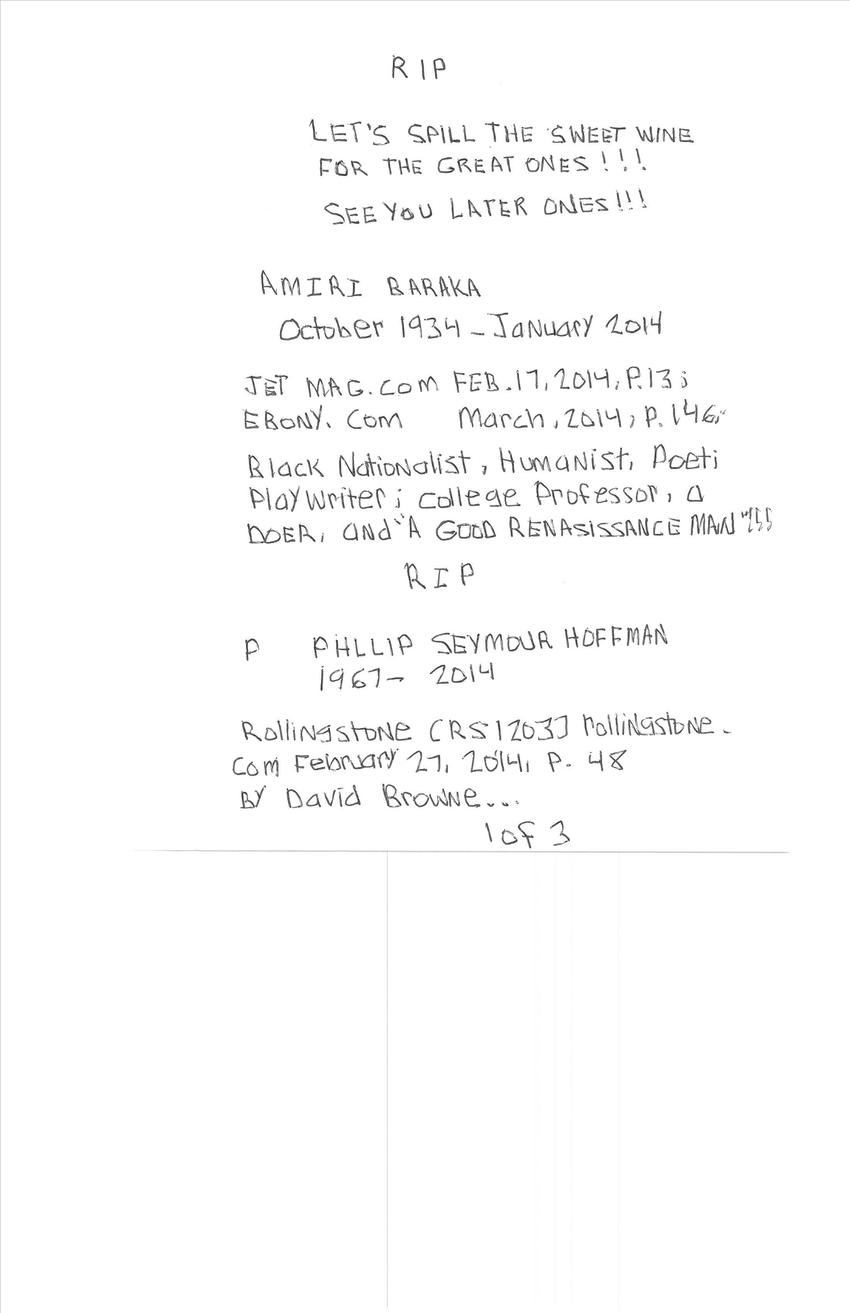 RIP
LET'S SPILL THE SWEET WINE
FOR THE GREAT ONES!!!
SEE YOU LATER ONES!!!
AMIRI BARAKA
October 1934 - January 2014
JET MAG.COM FEB.17, 2014, P.13;
EBONY. Com March, 2014; P. 146;
Black Nationalist, Humanist, Poet;
Playwriter; college Professor, a
DOER, and "A GOOD RENASISSANCE MAN"!!!
RIP
P PHLLIP SEYMOUR HOFFMAN
1967- 2014
Rollingstone CRS 1203] rollingstone.
Com February 27, 2014, P. 48
BY David Browne...
1 of 3